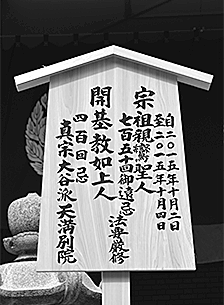 自二〇一五年十月二日
至二〇一五年十月四日
宗祖親鸞聖人
七百五十回御遠忌 法要厳修
開基教如上人
四百回忌
真宗大谷派天満別院